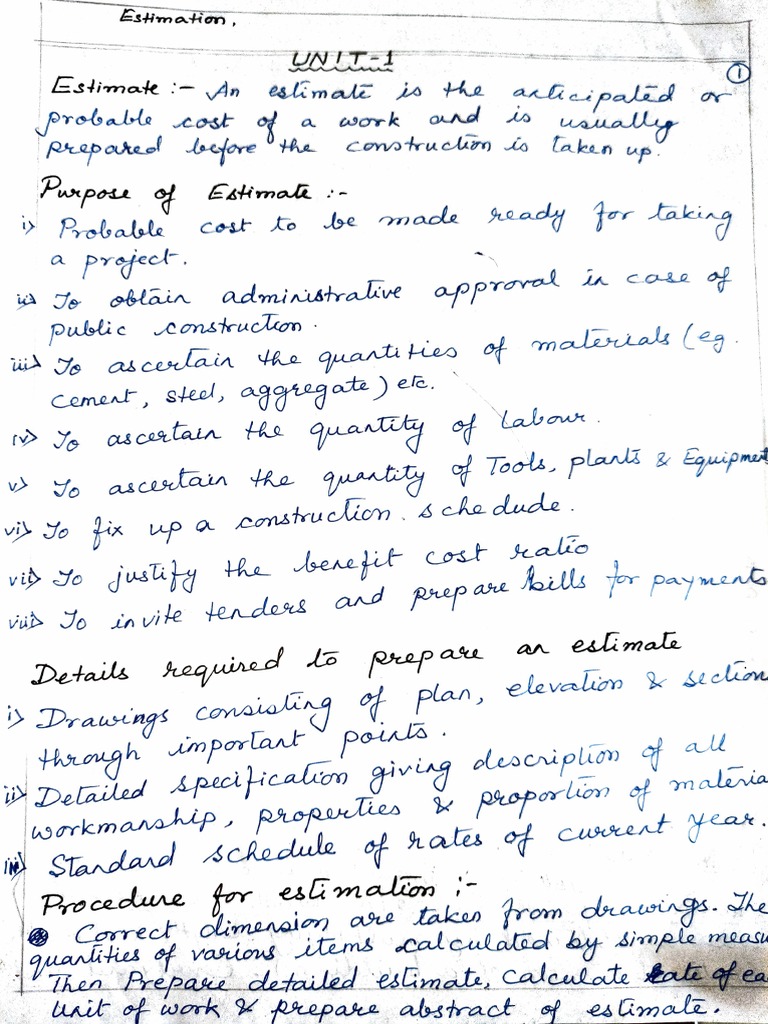 Estimation,
UNIT-1
1
Estimate :- An estimate is the anticipated or
probable cost of a work and is usually
prepared before the construction is taken up.
Purpose of Estimate :-
i> Probable cost to be made ready for taking
a project.
ii> To obtain administrative approval in case of
public construction.
iii> To ascertain the quantities of materials (eg.
cement, steel, aggregate) etc.
iv> To ascertain the quantity of Labour.
v> To ascertain the quantity of Tools, plants & Equipment
vi> To fix up a construction schedude.
vii> To justify the benefit cost ratio
viii> To invite tenders and prepare bills for payments
Details required to prepare an estimate
i> Drawings consisting of plan, elevation & section
through important points.
ii> Detailed specification giving description of all
workmanship, properties & proportion of materia
iii> Standard schedule of rates of current year.
Procedure for estimation :-
Correct dimension are taken from drawings. The
quantities of various items calculated by simple measu
Then Prepare detailed estimate, calculate rate of ea
Unit of work & prepare abstract of estimate.